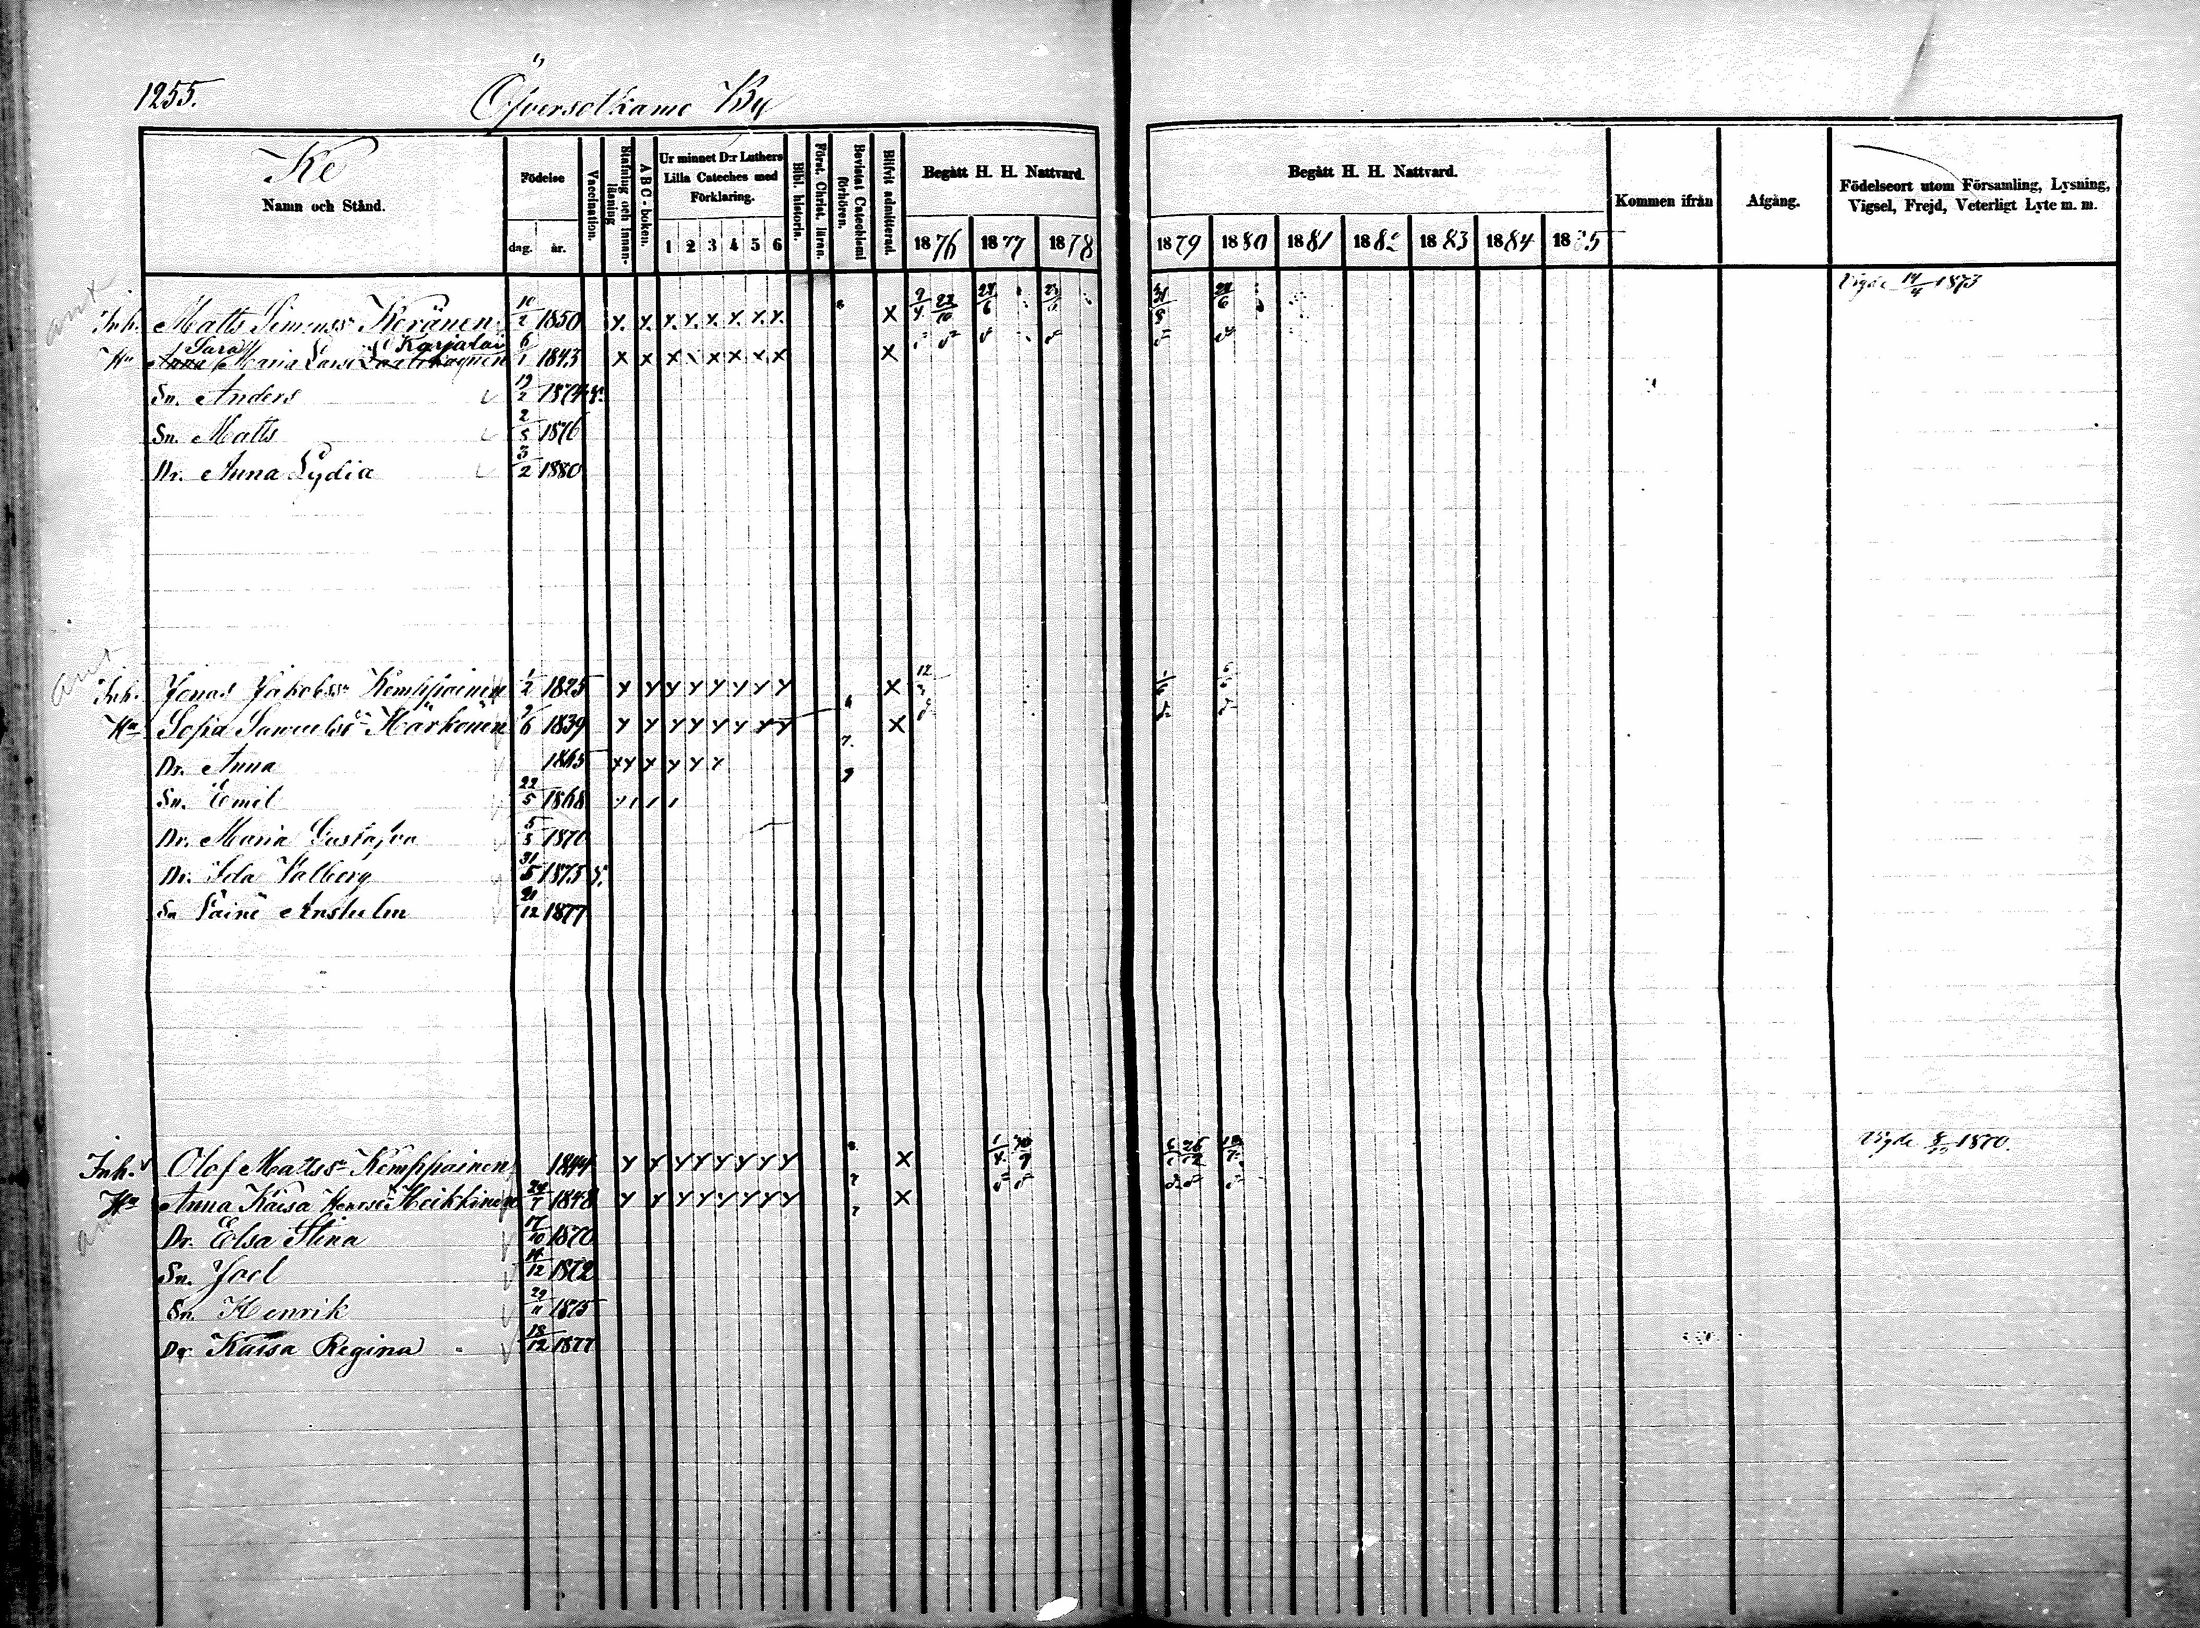 1255.
Öfversotkamo By
Ke
Namn och Stånd.
Födelse
dag. år.
Vaccination.
Stafning och innanläsning
ABC-boken.
Ur minnet D:r Luthers Lilla Cateches med Förklaring.
1 2 3 4 5 6
Bibl. historia.
Först. Christ. läran.
Bevistat Catechismi förhören.
Blifvit admitterad.
Begått H. H. Nattvard.
1876 1877 1878
Begått H. H. Nattvard.
1879 1880 1881 188 1883 1884 1885
Kommen ifrån
Afgång.
Födelseort utom Församling, Lysning, Vigsel, Frejd, Veterligt Lyte m. m.
Inh. Matts Simonss. Keränen 10/2 1850 x x x x x x x x X 9/4 22/10 24/6 Vigde 14/4 1873
Hu Anna Sara Maria Larsd. Karjalainen 6/1 1843 x x x x x x x x X
Sn. Anders 19/2 1874
Sn. Matts 2/5 1876
Dr. Anna Lydia 3/2 1880
Inh. Jonas Jakobss. Kemppainen 1/2 1825 x x x x x x x x X
Hu Sofia Samuelsd. Härkönen 9/6 1839 x x x x x x x x X
Dr. Anna 1865 x x x x x x
Sn. Emil 22/5 1868
Dr. Maria Gustafva 5/5 1870
Dr. Ida Valborg 31/5 1875
Sn Anshelm 21/12 1877
Inh. Olof Matss. Kemppainen 1844 x x x x x x x x X Vigde 1870.
Hu Anna Kaisa Henrsd. Heikkinen 1848 x x x x x x x x X
Dr. Elsa Stina 17/10 1870
Sn. Joel 14/12 1872
Sn. Henrik 29/11 1875
Dr Kaisa Regina 18/12 1877